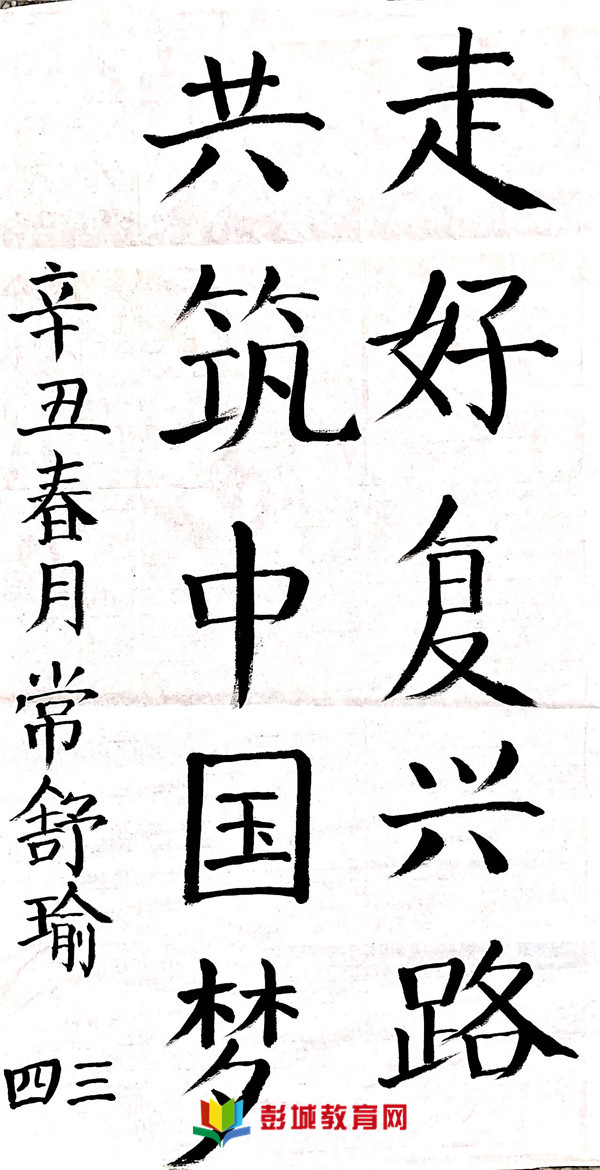 走好复兴路
共筑中国梦
辛丑春月常舒瑜
四三
彭城教育网